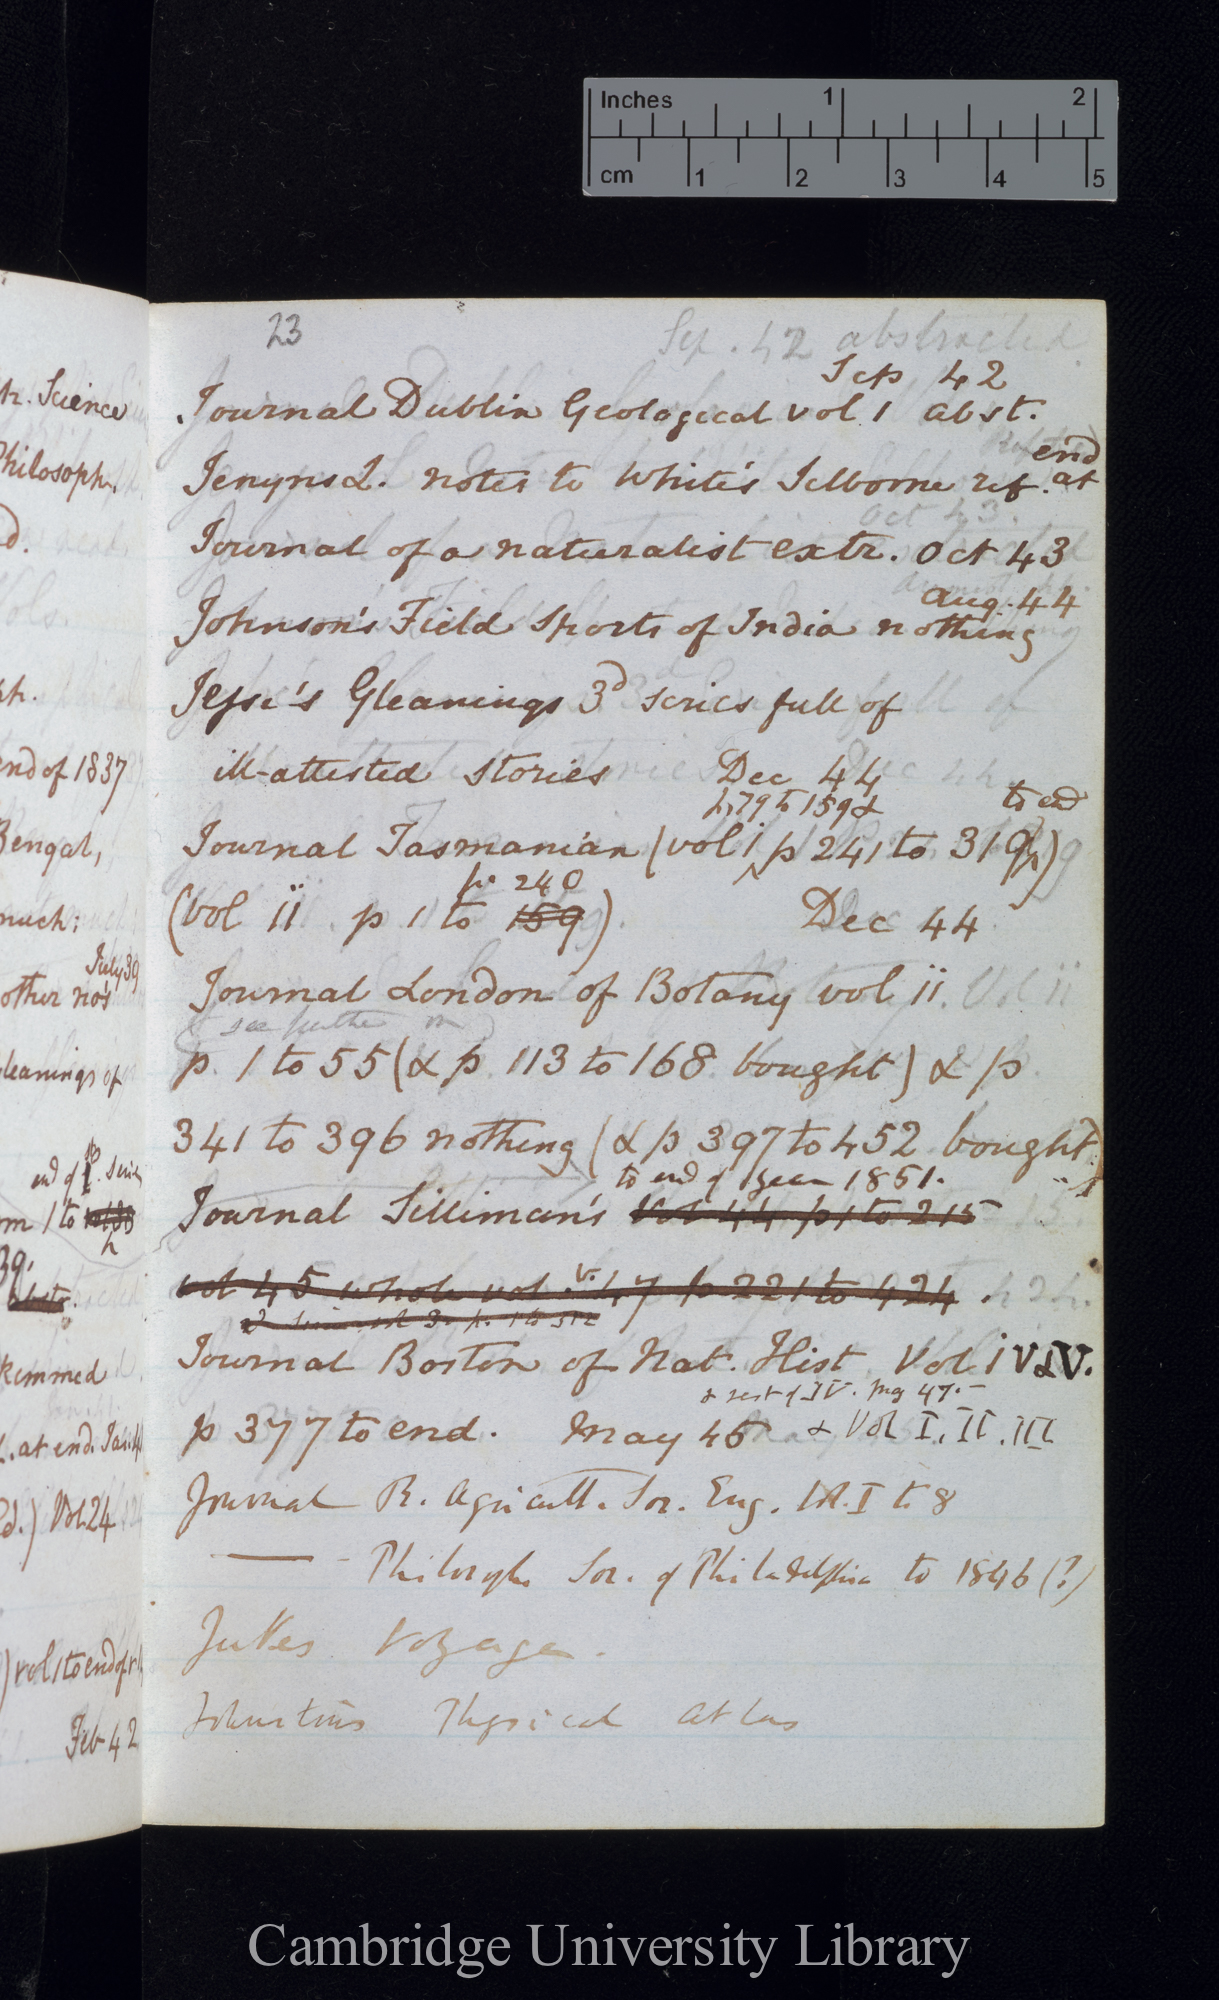 Inches 1 2
cm 1 2 3 4 5
23
Sep. 42 abstracted
Sep 42
Journal Dublin Geological vol 1 abst.
end
Jenyns L. notes to White's Selborne ref. at
Oct 43.
Journal of a naturalist extr. Oct 43
Aug. 44
Johnson's Field Sports of India nothing
Jesse's Gleanings 3d series full of
ill-attested stories Dec 44
p. 79 to 159 & to end
Journal Tasmanian (vol i p 241 to 319)
p. 240
(vol ii p 1 to 159) Dec 44
Journal London of Botany vol ii.
(see further on)
p. 1 to 55 (& p. 113 to 168 bought) & p
341 to 396 nothing (& p 397 to 452 bought)
to end of year 1851.
Journal Silliman's Vol 44 p 1 to 215
vol 45 whole vol v. 47 p 221 to 424
Journal Boston of Nat. Hist Vol IV & V.
& rest of IV. May 47.—
p 377 to end. May 45 & Vol I. II. III
Journal R. Agricult. Soc. Eng. Vol. I to 8
—— Philosoph Soc. of Philadelphia to 1846 (?)
Jukes Voyage.
Johnston's Physical Atlas
r. Science
Philosoph.
d.
ph.
end of 1837
Bengal,
much:
July 39
other no's
gleanings of
end of
m 1 to
39.
kimmed
. at end.
d.) Vol. 24
) vol 1 to end of
Feb 42
Cambridge University Library